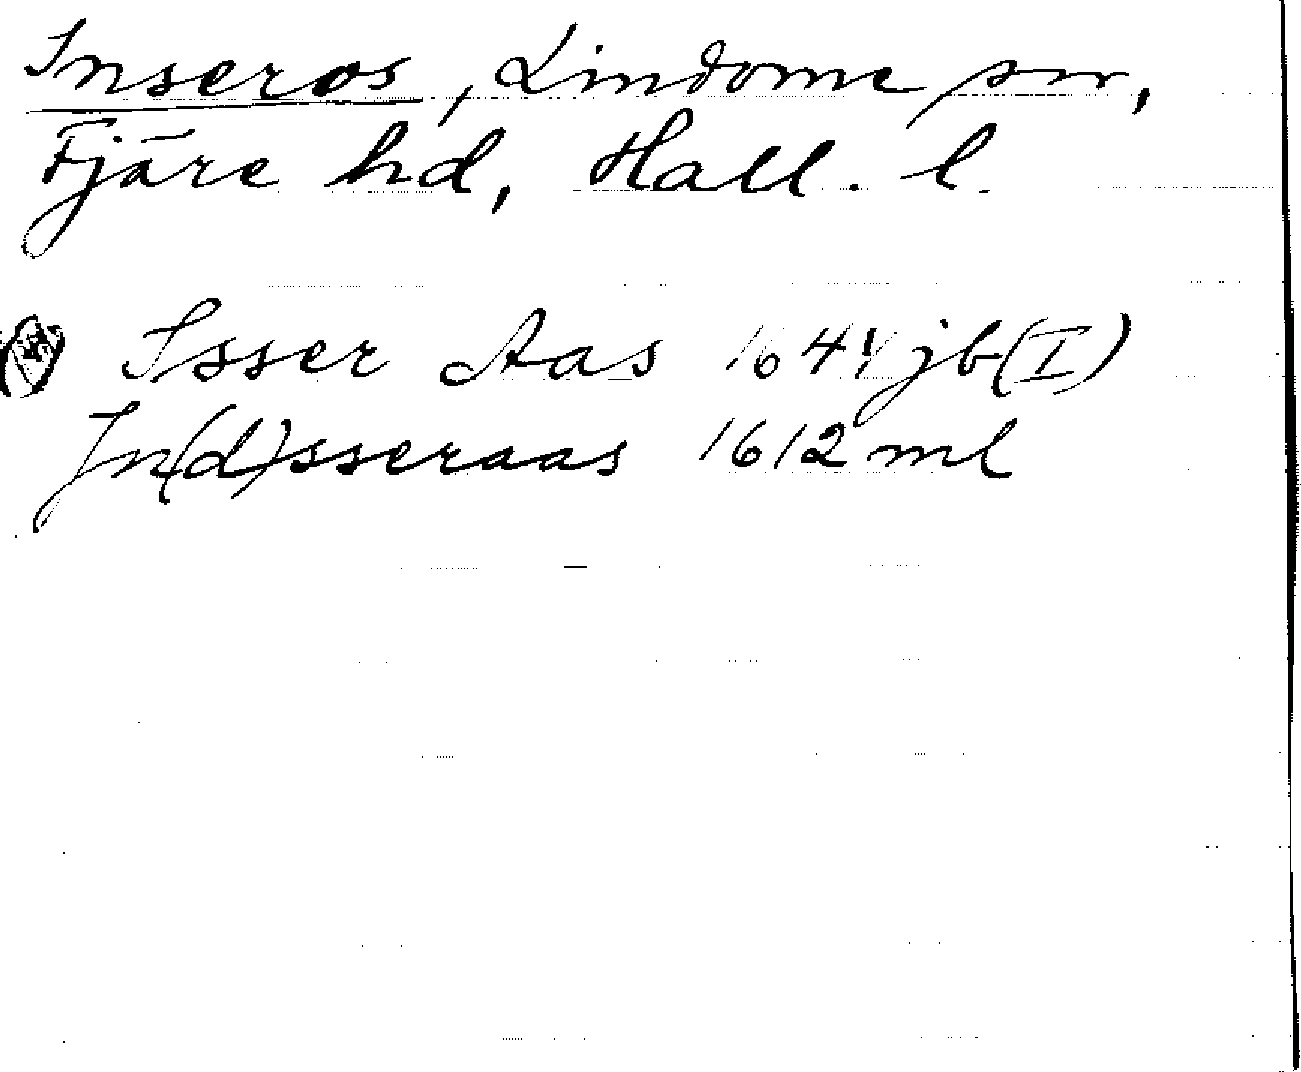 Inseros, Lindome sn,
Fjäre hd, Hall. l.
Isser Aas 1644 jb(I)
In(d)sseraas 1612 ml